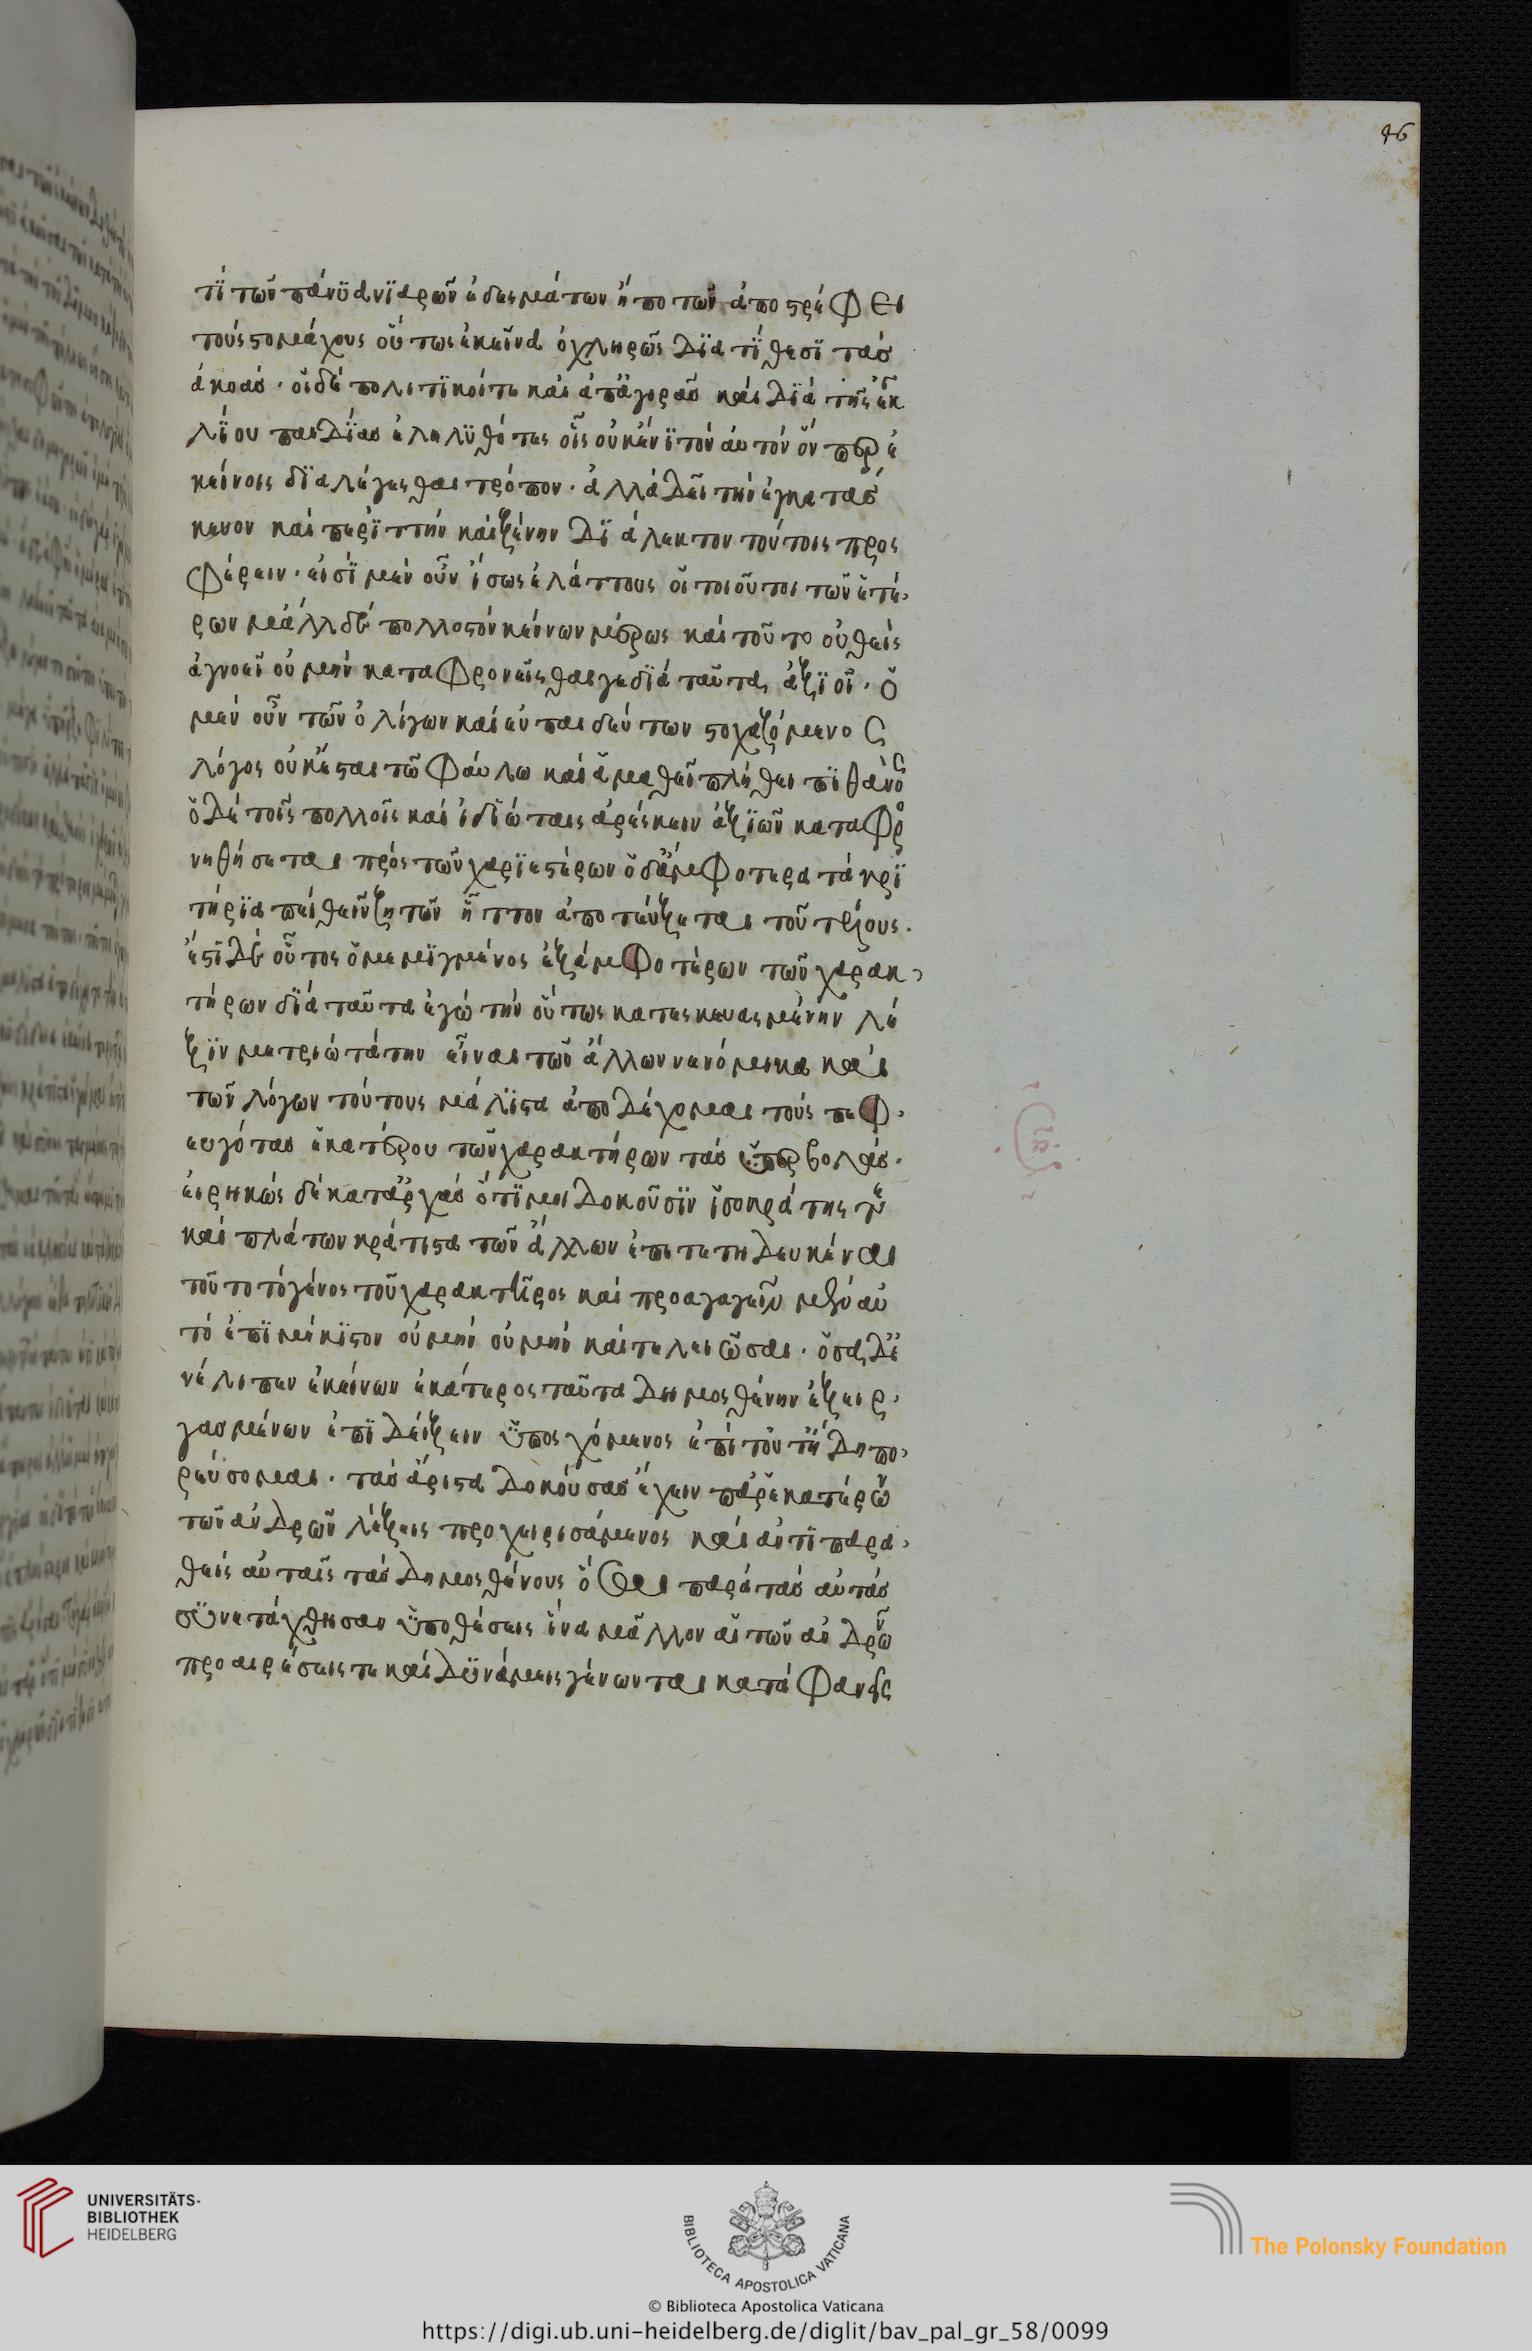 96
τϊ τῶν πάνϋ ἀνϊαρῶν ἐδεσμάτων ἢ ποτῶν ἀποστρέφει
τοὺς στομάχους οὕτως ἐκεῖνα ὀχληρῶς δϊατϊθησϊ τὰσ
ἀκοάσ. οἱ δὲ πολιτϊκοί τε καὶ ἀπ' ἀγορᾶσ καὶ δϊὰ τῆς ἐγκ
λϊου παιδϊασ ἐληλϋθότες οἷς οὐκ ἔνϊ τὸν αὐτὸν ὅνπερ ἐ
κείνοις δϊαλέγεσθαι τρόπον. ἀλλὰ δεῖ τὴν ἐγκατάσ
κευον καὶ περϊττὴν καὶ ξένην δϊάλεκτον τούτοις προσ
φέρειν. εἰσϊ μὲν οὖν ἴσως ἐλάττους οἱ τοιοῦτοι τῶν ἑτέ
ρων μᾶλλ δὲ πολλοστὸν κείνων μέρως καὶ τοῦτο οὐθεὶς
ἀγνοεῖ οὐ μὴν καταφρονεῖσθαι γε δϊὰ ταῦτα ἀξϊοϊ. ὁ
μὲν οὖν τῶν ὀλίγων καὶ εὐπαιδεύτων στοχαζόμενος
λόγος οὐκ ἔσται τῶ φαύλω καὶ ἀμαθεῖ πλήθει πϊθανὸς
ὁ δὲ τοῖς πολλοῖς καὶ ἰδϊώταις ἀρέσκειν ἀξϊῶν καταφρο
νηθήσεται πρὸς τῶν χαρϊεστέρων ὁ δ' ἀμφότερα τὰ κρϊ
τήρϊα πείθειν ζητῶν ἧττον ἀποτεύξεται τοῦ τέλους.
ἔστϊ δὲ οὗτος ὁ μεμϊγμένος ἐξ ἀμφοτέρων τῶν χαρακ
τήρων δϊὰ ταῦτα ἐγὼ τὴν οὕτως κατεσκευασμένην λέ
ξϊν μετριωτάτην εἶναι τῶν ἄλλων νενόμικα καὶ
τῶν λόγων τούτους μάλϊστα ἀποδέχομαι τοὺς πεφ
ευγότασ ἑκατέρου τῶν χαρακτήρων τὰσ ὑπερβολάσ.
εἰρηκὼς δὲ κατ' ἀρχὰσ ὅτϊ μοι δοκοῦσϊν ἰσοκράτης τε
καὶ πλάτων κράτιστα τῶν ἄλλων ἐπιτετηδευκέναι
τοῦτο τὸ γένος τοῦ χαρακτῆρος καὶ προαγαγεῖν μὲν αὐ
τὸ ἐπϊ μήκϊστον οὐ μὴν οὐ μὴν καὶ τελειῶσαι. ὅσα δ' ἐ
νέλιπεν ἐκείνων ἑκάτερος ταῦτα δημοσθένην ἐξειρ
γασμένων ἐπϊδείξειν ὑποσχόμενος ἐπὶ τοῦτ' ἤδη πο
ρεύσομαι. τὰσ ἄριστα δοκούσασ ἔχειν παρ' ἑκατέρω
τῶν ἀνδρῶν λέξεις προχειρισάμενος καὶ ἀντϊπαρα
θεὶς αὐταῖς τὰσ δημοσθένους ὅσαι παρὰ τὰσ αὐτὰσ
σϋνετάχθησαν ὑποθέσεις ἵνα μᾶλλον αἱ τῶν ἀνδρῶν
προαιρέσεις τε καὶ δϋνάμεις γένωνται καταφανεῖς
UNIVERSITÄTS-
BIBLIOTHEK
HEIDELBERG
BIBLIOTECA APOSTOLICA VATICANA
The Polonsky Foundation
© Biblioteca Apostolica Vaticana
https://digi.ub.uni-heidelberg.de/diglit/bav_pal_gr_58/0099